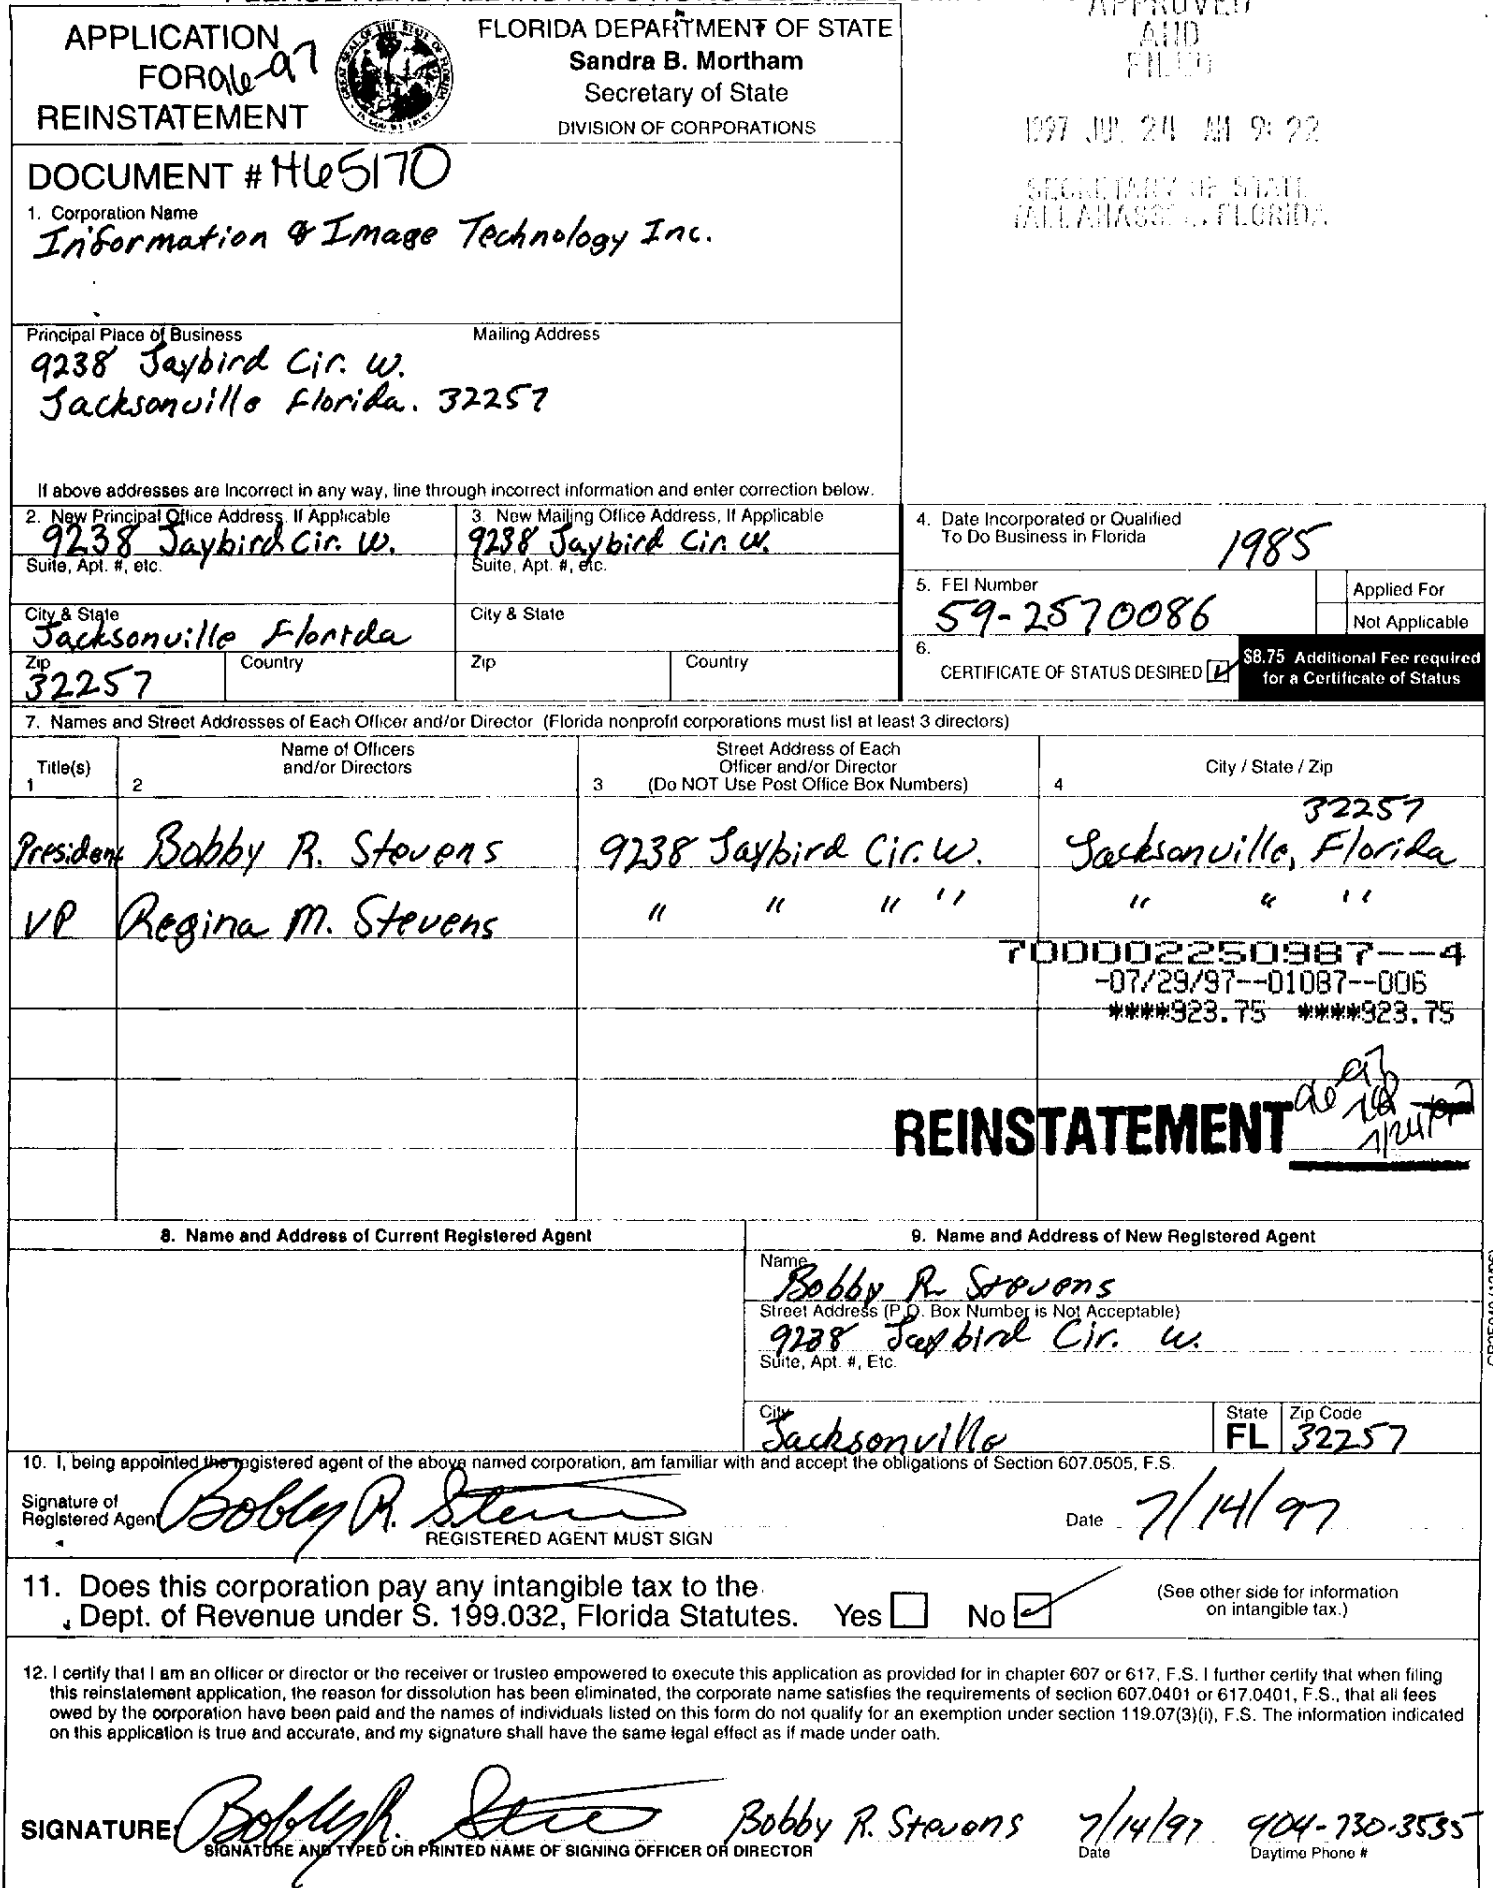 APPLICATION
FOR 96-97
REINSTATEMENT
FLORIDA DEPARTMENT OF STATE
Sandra B. Mortham
Secretary of State
DIVISION OF CORPORATIONS
APPROVED
AND
FILED
1997 JUL 24 AM 9:22
SECRETARY OF STATE
TALLAHASSEE, FLORIDA
DOCUMENT # H65170
1. Corporation Name
Information & Image Technology Inc.
Principal Place of Business Mailing Address
9238 Jaybird Cir. W.
Jacksonville Florida. 32257
If above addresses are Incorrect in any way, line through incorrect information and enter correction below.
2. New Principal Office Address, If Applicable
9238 Jaybird Cir. W.
Suite, Apt. #, etc.
City & State
Jacksonville Florida
Zip Country
32257
3. New Mailing Office Address, If Applicable
9238 Jaybird Cir. W.
Suite, Apt. #, etc.
City & State
Zip Country
4. Date Incorporated or Qualified
To Do Business in Florida
1985
5. FEI Number
59-2570086
Applied For
Not Applicable
6.
CERTIFICATE OF STATUS DESIRED
$8.75 Additional Fee required
for a Certificate of Status
7. Names and Street Addresses of Each Officer and/or Director (Florida nonprofit corporations must list at least 3 directors)
Title(s)
1
Name of Officers
and/or Directors
2
Street Address of Each
Officer and/or Director
3 (Do NOT Use Post Office Box Numbers)
City / State / Zip
4
32257
President Bobby R. Stevens 9238 Jaybird Cir. W. Jacksonville, Florida
VP Regina M. Stevens " " " " " " "
700002250987--4
-07/29/97--01087--006
****923.75 ****923.75
REINSTATEMENT
8. Name and Address of Current Registered Agent
9. Name and Address of New Registered Agent
Name
Bobby R. Stevens
Street Address (P.O. Box Number is Not Acceptable)
9238 Jaybird Cir. W.
Suite, Apt. #, Etc.
City State Zip Code
Jacksonville FL 32257
10. I, being appointed the registered agent of the above named corporation, am familiar with and accept the obligations of Section 607.0505, F.S.
Signature of
Registered Agent Bobby R. Stevens Date 7/14/97
REGISTERED AGENT MUST SIGN
11. Does this corporation pay any intangible tax to the
Dept. of Revenue under S. 199.032, Florida Statutes. Yes No
(See other side for information
on intangible tax.)
12. I certify that I am an officer or director or the receiver or trustee empowered to execute this application as provided for in chapter 607 or 617, F.S. I further certify that when filing
this reinstatement application, the reason for dissolution has been eliminated, the corporate name satisfies the requirements of section 607.0401 or 617.0401, F.S., that all fees
owed by the corporation have been paid and the names of individuals listed on this form do not qualify for an exemption under section 119.07(3)(i), F.S. The information indicated
on this application is true and accurate, and my signature shall have the same legal effect as if made under oath.
SIGNATURE: Bobby R. Stevens Bobby R. Stevens 7/14/97 904-730-3535
SIGNATURE AND TYPED OR PRINTED NAME OF SIGNING OFFICER OR DIRECTOR Date Daytime Phone #